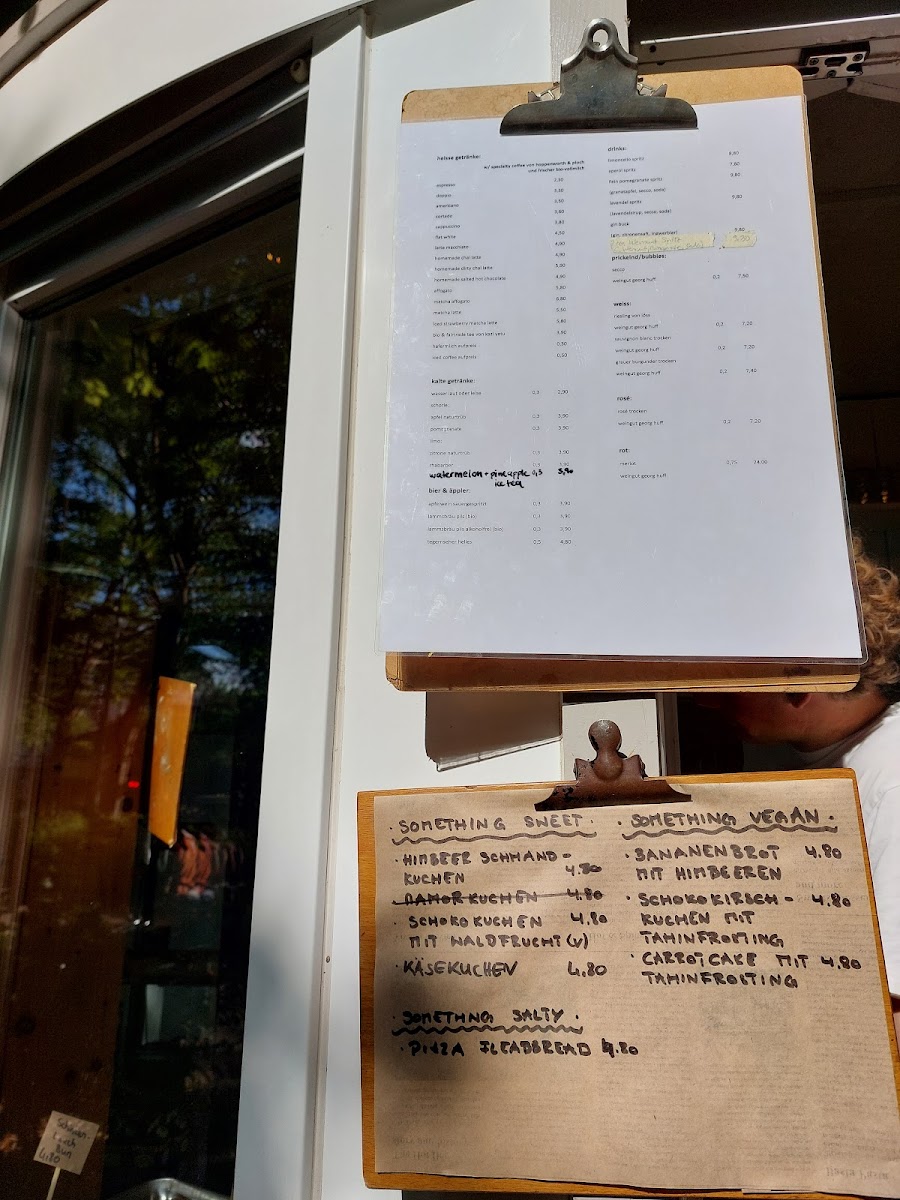 heisse getränke:
w/ specialty coffee von hoppenworth & ploch
und frischer biovollmilch
espresso
americano 3,50
cortado
cappuccino 3,80
flat white 4,50
latte macchiato 4,90
homemade chai latte 4,90
homemade dirty chai latte 5,80
homemade salted hot chocolate 4,90
affogato 5,80
matcha affogato 6,80
matcha latte
iced strawberry matcha latte 5,80
bio & fairtrade tee 4,90
hafermilch aufpreis 0,50
iced coffee aufpreis 0,50
kalte getränke:
wasser laut oder leise 0,3 2,90
schorle:
apfel naturtrüb 0,3 3,90
0,3 3,90
limo:
zitrone naturtrüb 0,3 3,90
rhabarber 0,3 3,90
watermelon + pineapple 0,3 5,90
ice tea
bier & äppler:
apfelwein sauergespritzt 0,3 3,90
lammsbräu pils (bio) 0,3 3,90
lammsbräu pils alkoholfrei (bio) 0,3 3,90
tegernseer helles 0,5 4,80
drinks:
limoncello spritz 8,80
aperol spritz 7,80
hot pomegranate spritz 9,80
(granatapfel, secco, soda)
lavendel spritz 9,80
(lavendelsirup, secco, soda)
gin buck 9,80
(gin, zitronensaft, ingwerbier)
9.80
prickelnd/bubbles:
secco
weingut georg huff 0,2 7,50
weiss:
riesling von idea
weingut georg huff 0,2 7,20
sauvignon blanc trocken
weingut georg huff 0,2 7,20
grauer burgunder trocken
weingut georg huff 0,2 7,40
rosé:
rosé trocken
weingut georg huff 0,2 7,20
rot:
merlot 0,75 24,00
weingut georg huff
· SOMETHING SWEET ·
· HIMBEER SCHMAND-
KUCHEN 4.80
· MAMORKUCHEN 4.80
· SCHOKOKUCHEN 4.80
MIT WALDFRUCHT (V)
· KÄSEKUCHEN 4.80
· SOMETHNG SALTY ·
· PINZA FLEADBREAD 4.80
· SOMETHING VEGAN ·
· BANANENBROT 4.80
MIT HIMBEEREN
· SCHOKOKIRSCH- 4.80
KUCHEN MIT
TAHINFROSTING
· CARROTCAKE MIT 4.80
TAHINFROSTING
4.80